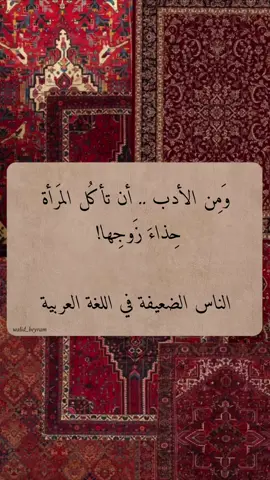 وَمِن الأدب .. أن تأكُل المَرأة
حِذاءَ زَوجِها!
الناس الضعيفة في اللغة العربية
walid_beyram